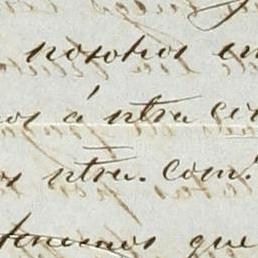 nosotros en
os á ntra ce
os ntra. com.
tenemos que